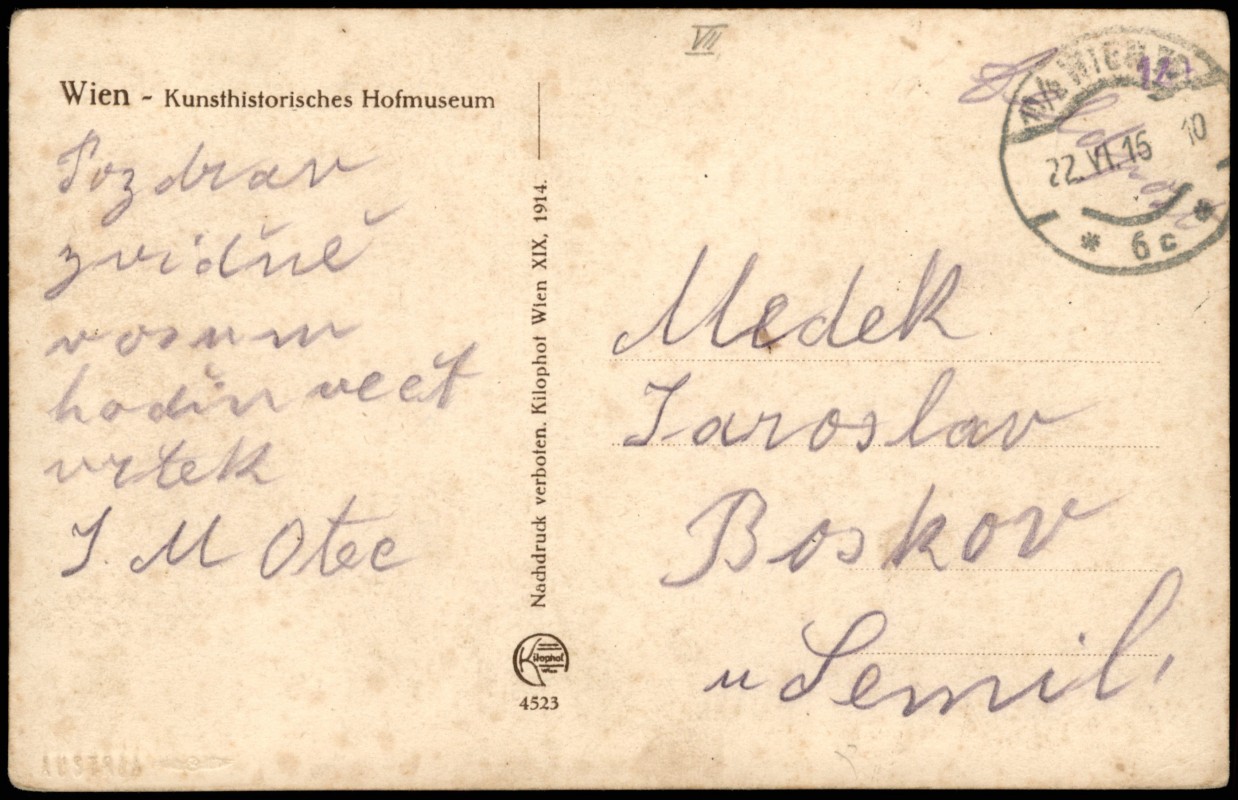 VII
Wien - Kunsthistorisches Hofmuseum
Pozdrav
zvidně
vosum
hodin večt
vrtek
J M Otec
Nachdruck verboten. Kilophot Wien XIX, 1914.
Kilophot
4523
WIEN
22.VI.16 10
* 6c *
Medek
Jaroslav
Boskov
u Semil,